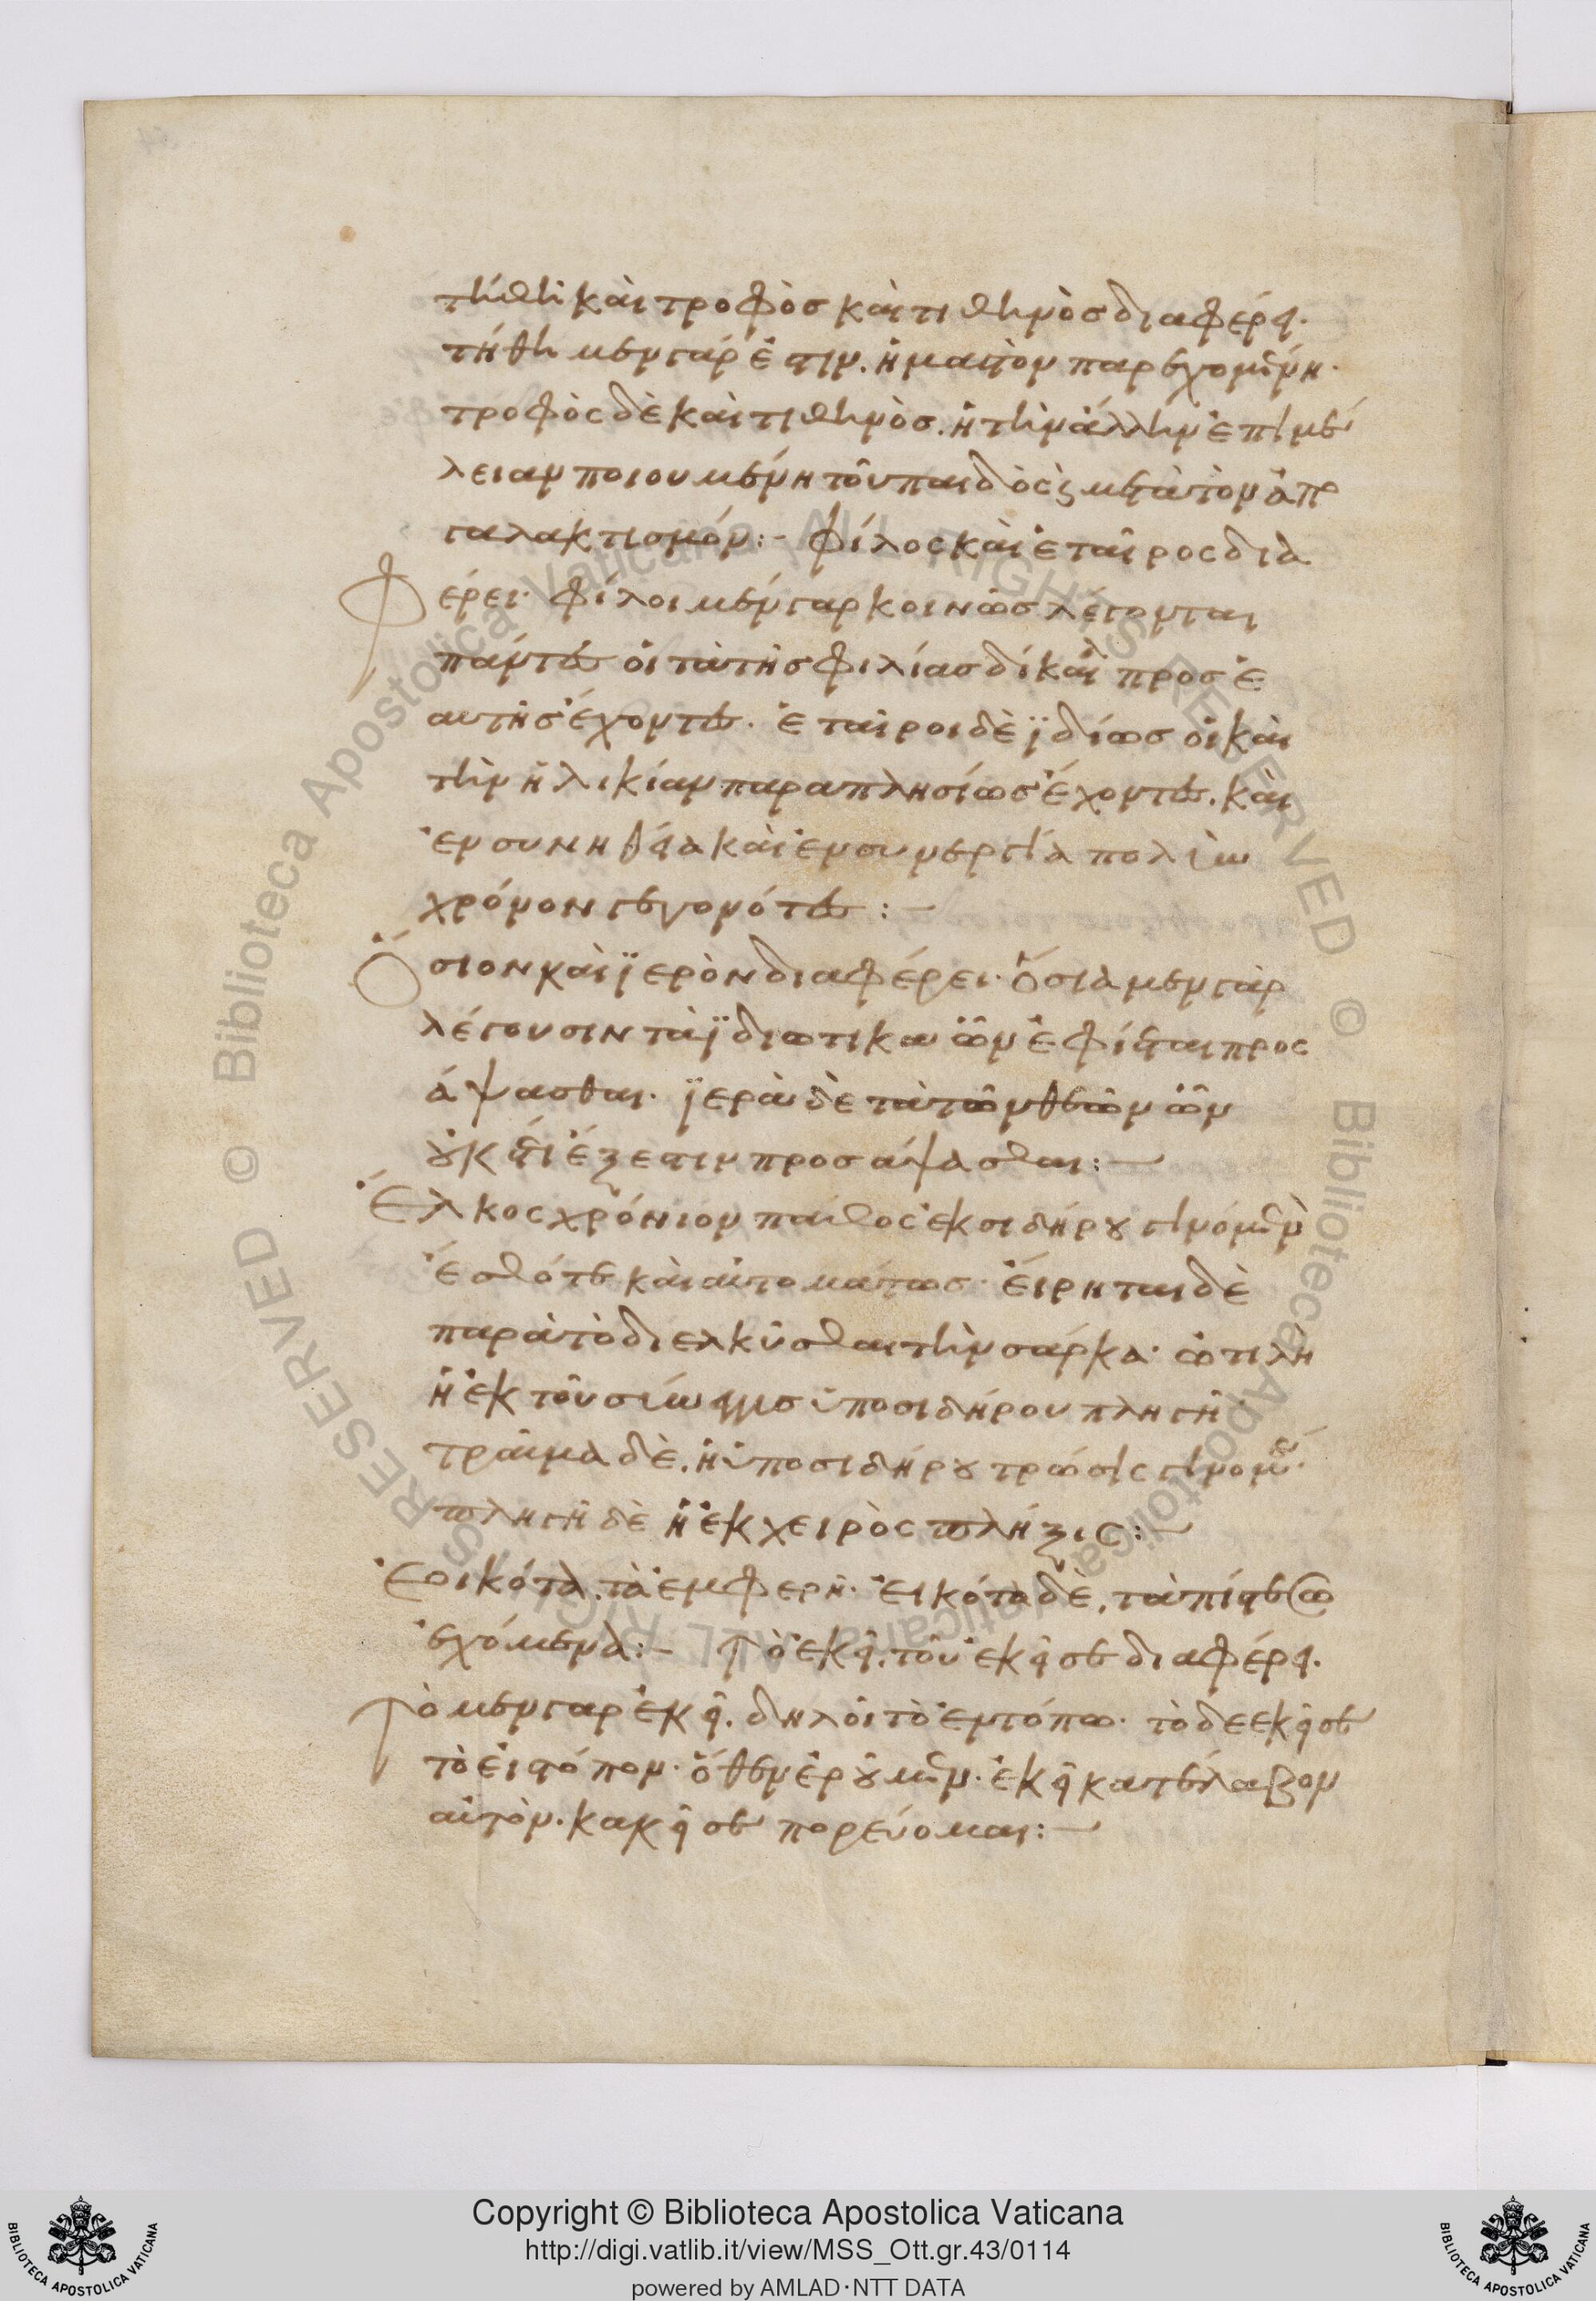 τίτθη καὶ τροφὸσ καὶ τιθηνὸσ διαφέρει·
τήθη μὲν γάρ ἐστιν. ἡ μαστὸν παρεχομένη·
τροφὸς δὲ καὶ τιθηνὸσ. ἡ τὴν ἄλλην ἐπιμέ
λειαν ποιουμένη τοῦ παιδὸς ϗ μετὰ τὸν ἀπο
γαλακτισμόν:- φίλος καὶ ἑταῖρος δια
φέρει· φίλοι μὲν γὰρ κοινῶσ λέγονται
πάντες οἱ τὰ τῆσ φιλίασ δίκαια προσ ἑ
αυτῆσ ἔχοντες. ἑταῖροι δὲ ϊδίωσ οἱ καὶ
τὴν ἡλικίαν παραπλησίωσ ἔχοντες. καὶ
ἐν συνηθεία καὶ ἐν συνεργία πολὺν
χρόνον γεγονότες:—
Ὅσιον καὶ ϊερὸν διαφέρει· ὅσια μὲν γὰρ
λέγουσιν τὰ ϊδιωτικὰ ὧν ἐφίεται προς
άψασθαι· ϊερὰ δὲ τὰ τῶν θεῶν ὧν
οὐκ έτι ἔξεστιν προσάψασθαι:—
Ἕλκος χρόνιον πάθος ἐκ σιδήρου γινόμενον
ἔσθότε καὶ αὐτομάτωσ· ἔιρηται δὲ
παρὰ τὸ διελκῦσθαι τὴν σάρκα· ὠτιλὴ
ἡ ἐκ τοῦ σύνεγγυσ ὑπο σιδήρου πληγὴ·
τραῦμα δὲ. ἡ ὑπο σιδήρου τρώσις γινομένη·
πληγὴ δὲ ἡ ἐκ χειρὸς πλῆξις:—
Ἐοικότα. τὰ ἐμφερῆ· ἐικότα δὲ, τὰ πίστεως
ἐχόμενα:— Τὸ ἐκεῖ, τοῦ ἐκεῖσε διαφέρει.
Τὸ μὲν γαρ ἐκεῖ. δηλοῖ τὸ ἐν τόπω· τὸ δε ἐκεῖσε
τὸ εἰς τόπον· ὅθεν ἐροῦμεν· ἐκεῖ κατέλαβον
αὐτὸν. κακεῖσε πορεύομαι:—
Copyright © Biblioteca Apostolica Vaticana
http://digi.vatlib.it/view/MSS_Ott.gr.43/0114
powered by AMLAD·NTT DATA